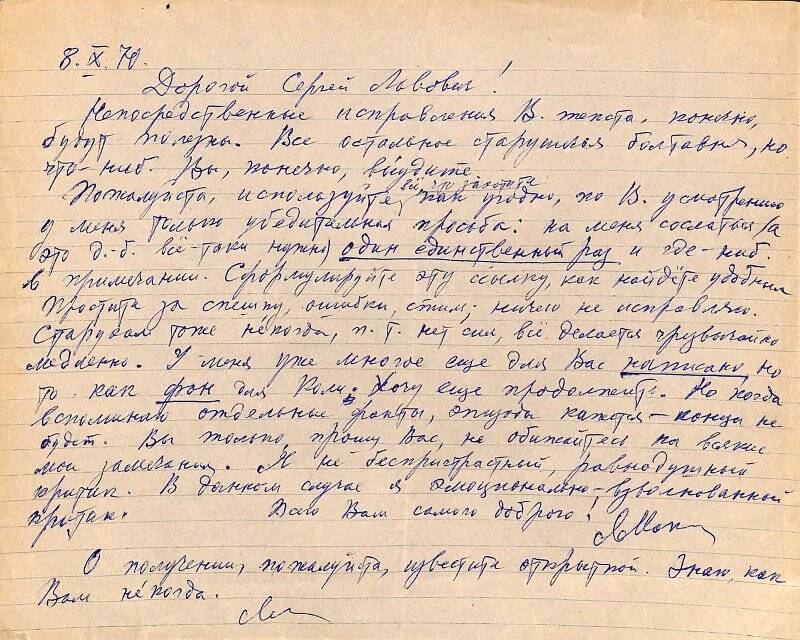 8. IX. 70.
Дорогой Сергей Львович!
Непосредственные исправления В. текста, конечно,
будут полезны. Все остальное старушечья болтавня, но
что-ниб. Вы, конечно, выудите
всё что захотите
Пожалуйста, используйте, как угодно, по В. усмотрению
у меня только убедительная просьба: на меня сослаться (а
это д.-б. всё-таки нужно) один единственный раз и где-ниб.
в примечании. Сформулируйте эту ссылку, как найдёте удобным
Простите за спешку, ошибки, стиль; ничего не исправляю.
Старухам тоже некогда, п. т. нет сил, всё делается чрезвычайно
медленно. У меня уже многое еще для Вас написано, но
то как фон для Коли. Хочу еще продолжить. Но когда
вспоминаю отдельные факты, эпизоды кажется – конца не
будет. Вы только, прошу Вас, не обижайтесь на всякие
мои замечания. Я не беспристрастный, равнодушный
критик. В данном случае я эмоционально-взволнованный
критик. Всего Вам самого доброго!
О получении, пожалуйста, известите открыткой. Знаю, как
Вам некогда.